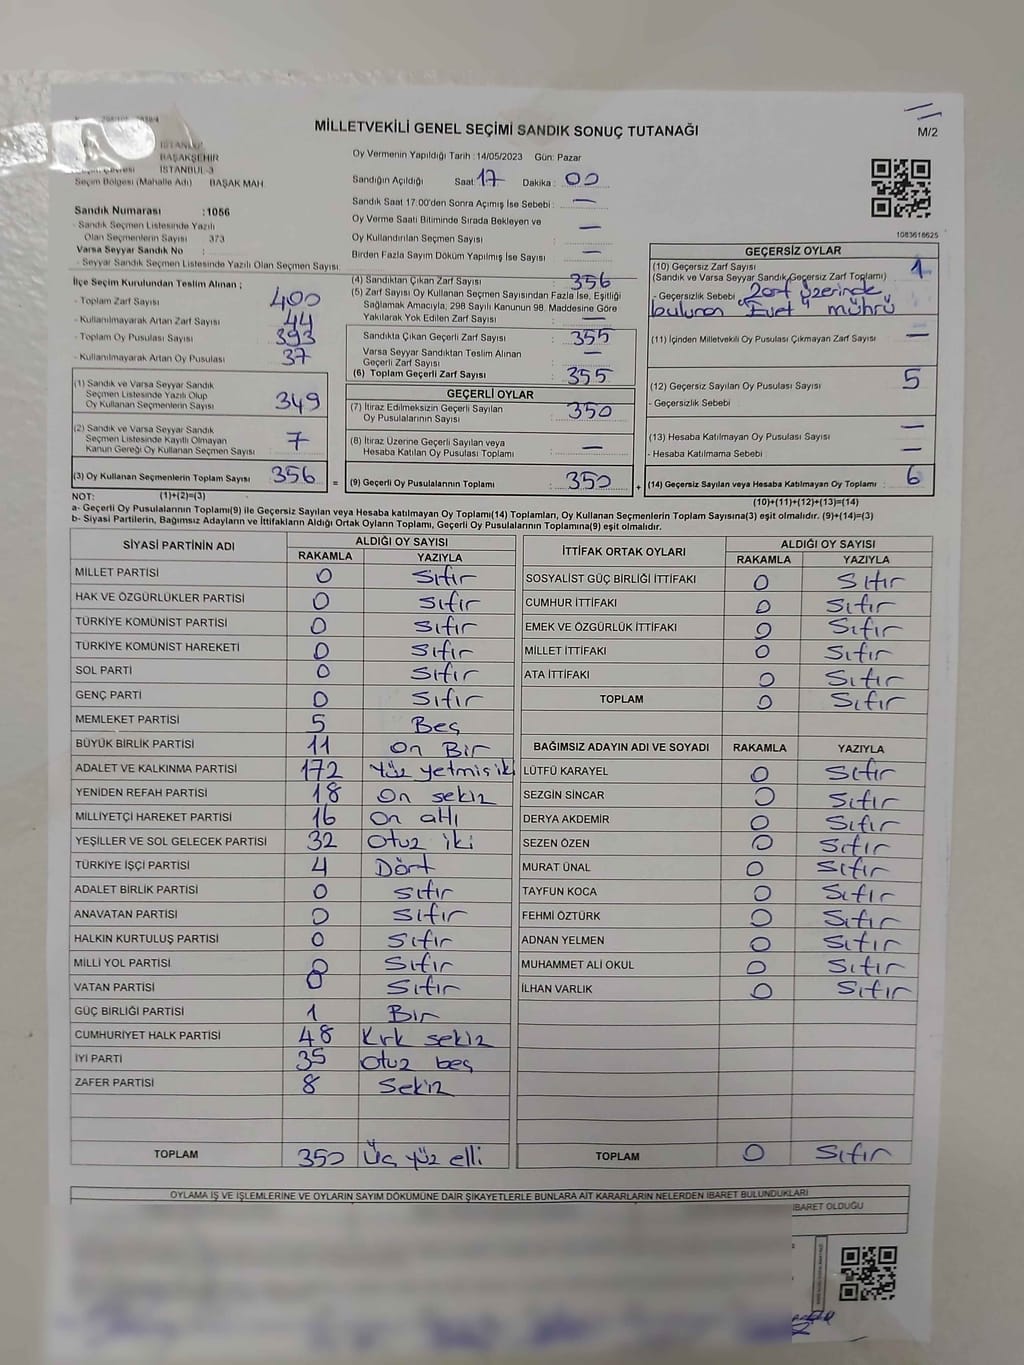 MİLLETVEKİLİ GENEL SEÇİMİ SANDIK SONUÇ TUTANAĞI
M/2
İSTANBUL
BAŞAKŞEHİR
İSTANBUL-3
Seçim Bölgesi (Mahalle Adı) BAŞAK MAH.
Sandık Numarası :1056
- Sandık Seçmen Listesinde Yazılı
Olan Seçmenlerin Sayısı 373
Varsa Seyyar Sandık No :
- Seyyar Sandık Seçmen Listesinde Yazılı Olan Seçmen Sayısı:
Oy Vermenin Yapıldığı Tarih : 14/05/2023 Gün: Pazar
Sandığın Açıldığı Saat: 17 Dakika : 00
Sandık Saat 17:00'den Sonra Açımış İse Sebebi : —
Oy Verme Saati Bitiminde Sırada Bekleyen ve
Oy Kullandırılan Seçmen Sayısı : —
Birden Fazla Sayım Döküm Yapılmış İse Sayısı : —
1083618625
İlçe Seçim Kurulundan Teslim Alınan ;
- Toplam Zarf Sayısı : 400
- Kullanılmayarak Artan Zarf Sayısı : 44
- Toplam Oy Pusulası Sayısı : 393
- Kullanılmayarak Artan Oy Pusulası : 37
(1) Sandık ve Varsa Seyyar Sandık
Seçmen Listesinde Yazılı Olup
Oy Kullanan Seçmenlerin Sayısı : 349
(2) Sandık ve Varsa Seyyar Sandık
Seçmen Listesinde Kayıtlı Olmayan
Kanun Gereği Oy Kullanan Seçmen Sayısı : 7
(3) Oy Kullanan Seçmenlerin Toplam Sayısı : 356
(4) Sandıktan Çıkan Zarf Sayısı : 356
(5) Zarf Sayısı Oy Kullanan Seçmen Sayısından Fazla İse, Eşitliği
Sağlamak Amacıyla, 298 Sayılı Kanunun 98. Maddesine Göre
Yakılarak Yok Edilen Zarf Sayısı : —
Sandıkta Çıkan Geçerli Zarf Sayısı : 355
Varsa Seyyar Sandıktan Teslim Alınan
Geçerli Zarf Sayısı : —
(6) Toplam Geçerli Zarf Sayısı : 355
GEÇERLİ OYLAR
(7) İtiraz Edilmeksizin Geçerli Sayılan
Oy Pusulalarının Sayısı : 350
(8) İtiraz Üzerine Geçerli Sayılan veya
Hesaba Katılan Oy Pusulası Toplamı : —
= (9) Geçerli Oy Pusulalarının Toplamı : 350 +
GEÇERSİZ OYLAR
(10) Geçersiz Zarf Sayısı : 1
(Sandık ve Varsa Seyyar Sandık Geçersiz Zarf Toplamı)
- Geçersizlik Sebebi : Zarf üzerinde
bulunan "Evet" mührü
(11) İçinden Milletvekili Oy Pusulası Çıkmayan Zarf Sayısı : —
(12) Geçersiz Sayılan Oy Pusulası Sayısı : 5
- Geçersizlik Sebebi :
(13) Hesaba Katılmayan Oy Pusulası Sayısı : —
- Hesaba Katılmama Sebebi : —
(14) Geçersiz Sayılan veya Hesaba Katılmayan Oy Toplamı : 6
NOT: (1)+(2)=(3) (10)+(11)+(12)+(13)=(14)
a- Geçerli Oy Pusulalarının Toplamı(9) ile Geçersiz Sayılan veya Hesaba katılmayan Oy Toplamı(14) Toplamları, Oy Kullanan Seçmenlerin Toplam Sayısına(3) eşit olmalıdır. (9)+(14)=(3)
b- Siyasi Partilerin, Bağımsız Adayların ve İttifakların Aldığı Ortak Oyların Toplamı, Geçerli Oy Pusulalarının Toplamına(9) eşit olmalıdır.
SİYASİ PARTİNİN ADI ALDIĞI OY SAYISI
RAKAMLA YAZIYLA
MİLLET PARTİSİ 0 Sıfır
HAK VE ÖZGÜRLÜKLER PARTİSİ 0 Sıfır
TÜRKİYE KOMÜNİST PARTİSİ 0 Sıfır
TÜRKİYE KOMÜNİST HAREKETİ 0 Sıfır
SOL PARTİ 0 Sıfır
GENÇ PARTİ 0 Sıfır
MEMLEKET PARTİSİ 5 Beş
BÜYÜK BİRLİK PARTİSİ 11 On Bir
ADALET VE KALKINMA PARTİSİ 172 Yüz yetmiş iki
YENİDEN REFAH PARTİSİ 18 On sekiz
MİLLİYETÇİ HAREKET PARTİSİ 16 On altı
YEŞİLLER VE SOL GELECEK PARTİSİ 32 Otuz iki
TÜRKİYE İŞÇİ PARTİSİ 4 Dört
ADALET BİRLİK PARTİSİ 0 Sıfır
ANAVATAN PARTİSİ 0 Sıfır
HALKIN KURTULUŞ PARTİSİ 0 Sıfır
MİLLİ YOL PARTİSİ 0 Sıfır
VATAN PARTİSİ 0 Sıfır
GÜÇ BİRLİĞİ PARTİSİ 1 Bir
CUMHURİYET HALK PARTİSİ 48 Kırk sekiz
İYİ PARTİ 35 Otuz beş
ZAFER PARTİSİ 8 Sekiz
TOPLAM 350 Üç yüz elli
İTTİFAK ORTAK OYLARI ALDIĞI OY SAYISI
RAKAMLA YAZIYLA
SOSYALİST GÜÇ BİRLİĞİ İTTİFAKI 0 Sıfır
CUMHUR İTTİFAKI 0 Sıfır
EMEK VE ÖZGÜRLÜK İTTİFAKI 0 Sıfır
MİLLET İTTİFAKI 0 Sıfır
ATA İTTİFAKI 0 Sıfır
TOPLAM 0 Sıfır
BAĞIMSIZ ADAYIN ADI VE SOYADI RAKAMLA YAZIYLA
LÜTFÜ KARAYEL 0 Sıfır
SEZGİN SİNCAR 0 Sıfır
DERYA AKDEMİR 0 Sıfır
SEZEN ÖZEN 0 Sıfır
MURAT ÜNAL 0 Sıfır
TAYFUN KOCA 0 Sıfır
FEHMİ ÖZTÜRK 0 Sıfır
ADNAN YELMEN 0 Sıfır
MUHAMMET ALİ OKUL 0 Sıfır
İLHAN VARLIK 0 Sıfır
TOPLAM 0 Sıfır
OYLAMA İŞ VE İŞLEMLERİNE VE OYLARIN SAYIM DÖKÜMÜNE DAİR ŞİKAYETLERLE BUNLARA AİT KARARLARIN NELERDEN İBARET BULUNDUKLARI
İBARET OLDUĞU